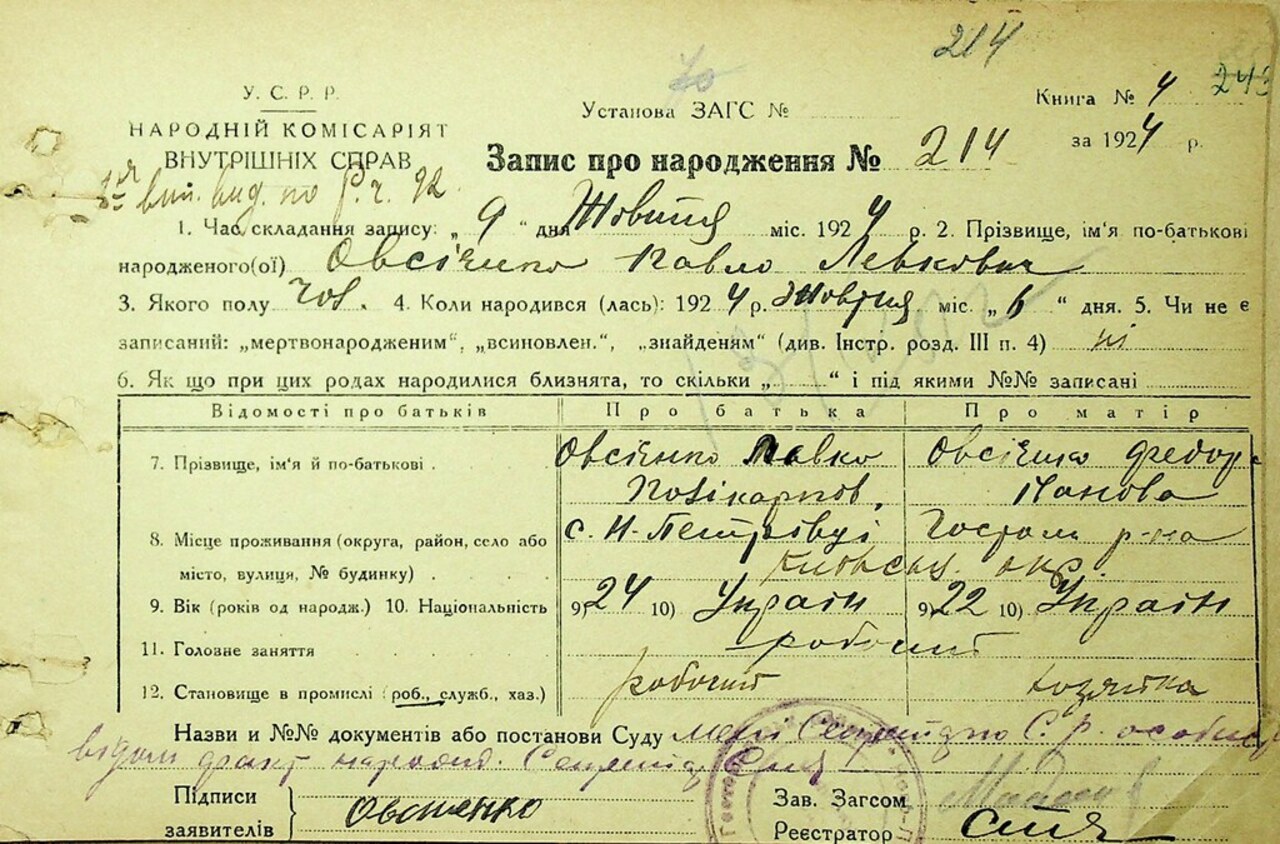 214
243
У. С. Р. Р.
НАРОДНІЙ КОМІСАРІЯТ
ВНУТРІШНІХ СПРАВ
70
Установа ЗАГС №
Книга № 4
за 1924 р.
Запис про народження № 214
1. Час складання запису: „ 9 “ дня Жовтня міс. 1924 р. 2. Прізвище, ім'я по-батькові
народженого(ої) Овсієнко Павло Левкович
3. Якого полу чол. 4. Коли народився (лась): 1924 р. Жовтня міс. „ 6 “ дня. 5. Чи не є
записаний: „мертвонародженим“, „всиновлен.“, „знайденям“ (див. Інстр. розд. III п. 4) ні
6. Як що при цих родах народилися близнята, то скільки „ “ і під якими №№ записані
Відомості про батьків Про батька Про матір
7. Прізвище, ім'я й по-батькові Овсієнко Левко Овсієнко Федор
Полікарпов. Панова
8. Місце проживання (округа, район, село або с. Н-Петрівці Гостом р-на
місто, вулиця, № будинку) Київськ. окр.
9. Вік (років од народж.) 10. Національність 9) 24 10) Україн 9) 22 10) Україн
11. Головне заняття робочий
12. Становище в промислі (роб., служб., хаз.) робочий хозяйка
Назви и №№ документів або постанови Суду мені С. Р.
факт народж.
Підписи
заявителів Овсієнко
Зав. Загсом
Реєстратор